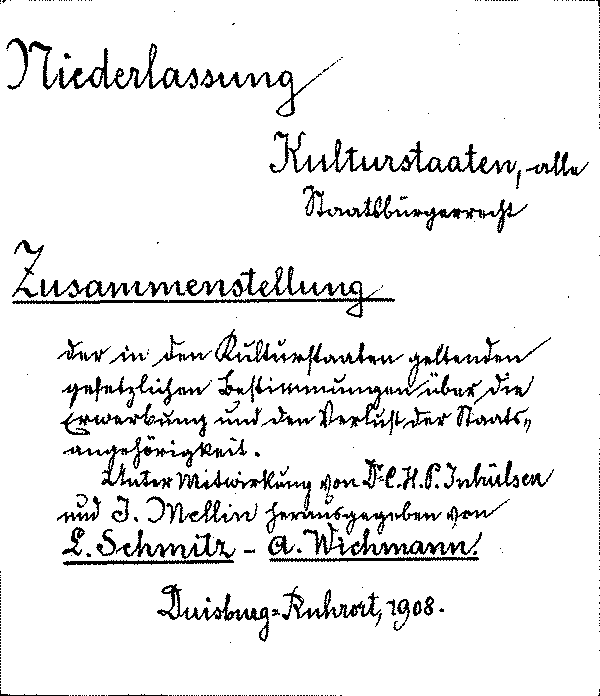 Niederlassung
Kulturstaaten, alle
Staatsbürgerrecht
Zusammenstellung
der in den Kulturstaaten geltenden
gesetzlichen Bestimmungen über die
Erwerbung und den Verlust der Staats-
angehörigkeit.
Unter Mitwirkung von Dr. C. H. P. Inhülsen
und J. Mellin herausgegeben von
L. Schmitz - A. Wichmann.
Duisburg-Ruhrort, 1908.